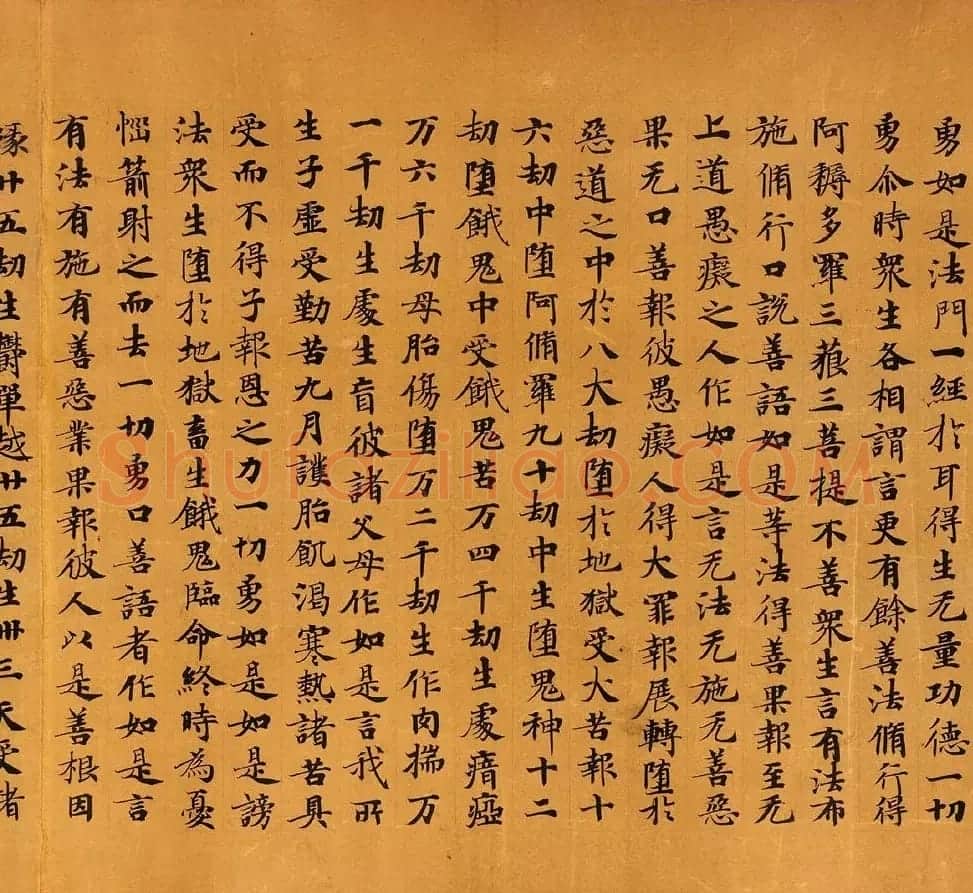 勇如是法門一經於耳得生无量功德一切
勇尒時衆生各相謂言更有餘善法脩行得
阿耨多羅三藐三菩提不善衆生言有法布
施脩行口説善語如是等法得善果報至无
上道愚癡之人作如是言无法无施无善惡
果无口善報彼愚癡人得大罪報展轉堕於
惡道之中於八大劫堕於地獄受大苦報十
六劫中堕阿脩羅九十劫中生堕鬼神十二
劫堕餓鬼中受餓鬼苦万四千劫生處瘖瘂
万六千劫母胎傷堕万二千劫生作肉揣万
一千劫生處生盲彼諸父母作如是言我所
生子虛受勤苦九月護胎飢渴寒熱諸苦具
受而不得子報恩之力一切勇如是如是謗
法衆生堕於地獄畜生餓鬼臨命終時為憂
惱箭射之而去一切勇口善語者作如是言
有法有施有善惡業果報彼人以是善根因
縁廿五劫生欝單越廿五劫生卅三天受諸
Shufaziliao.COM